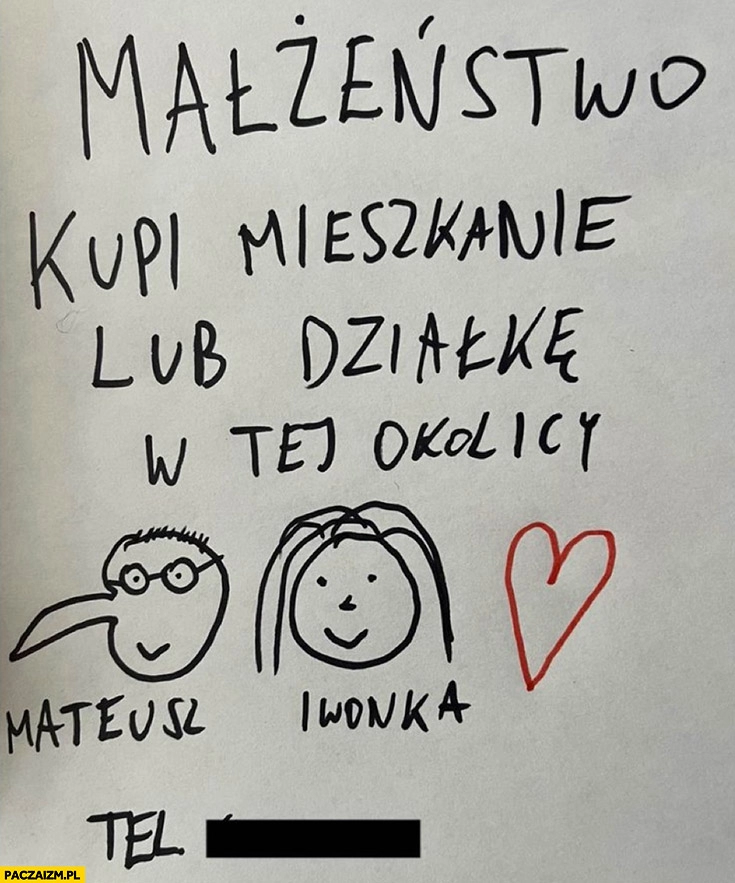 MAŁŻEŃSTWO
KUPI MIESZKANIE
LUB DZIAŁKĘ
W TEJ OKOLICY
MATEUSZ IWONKA
TEL
PACZAIZM.PL